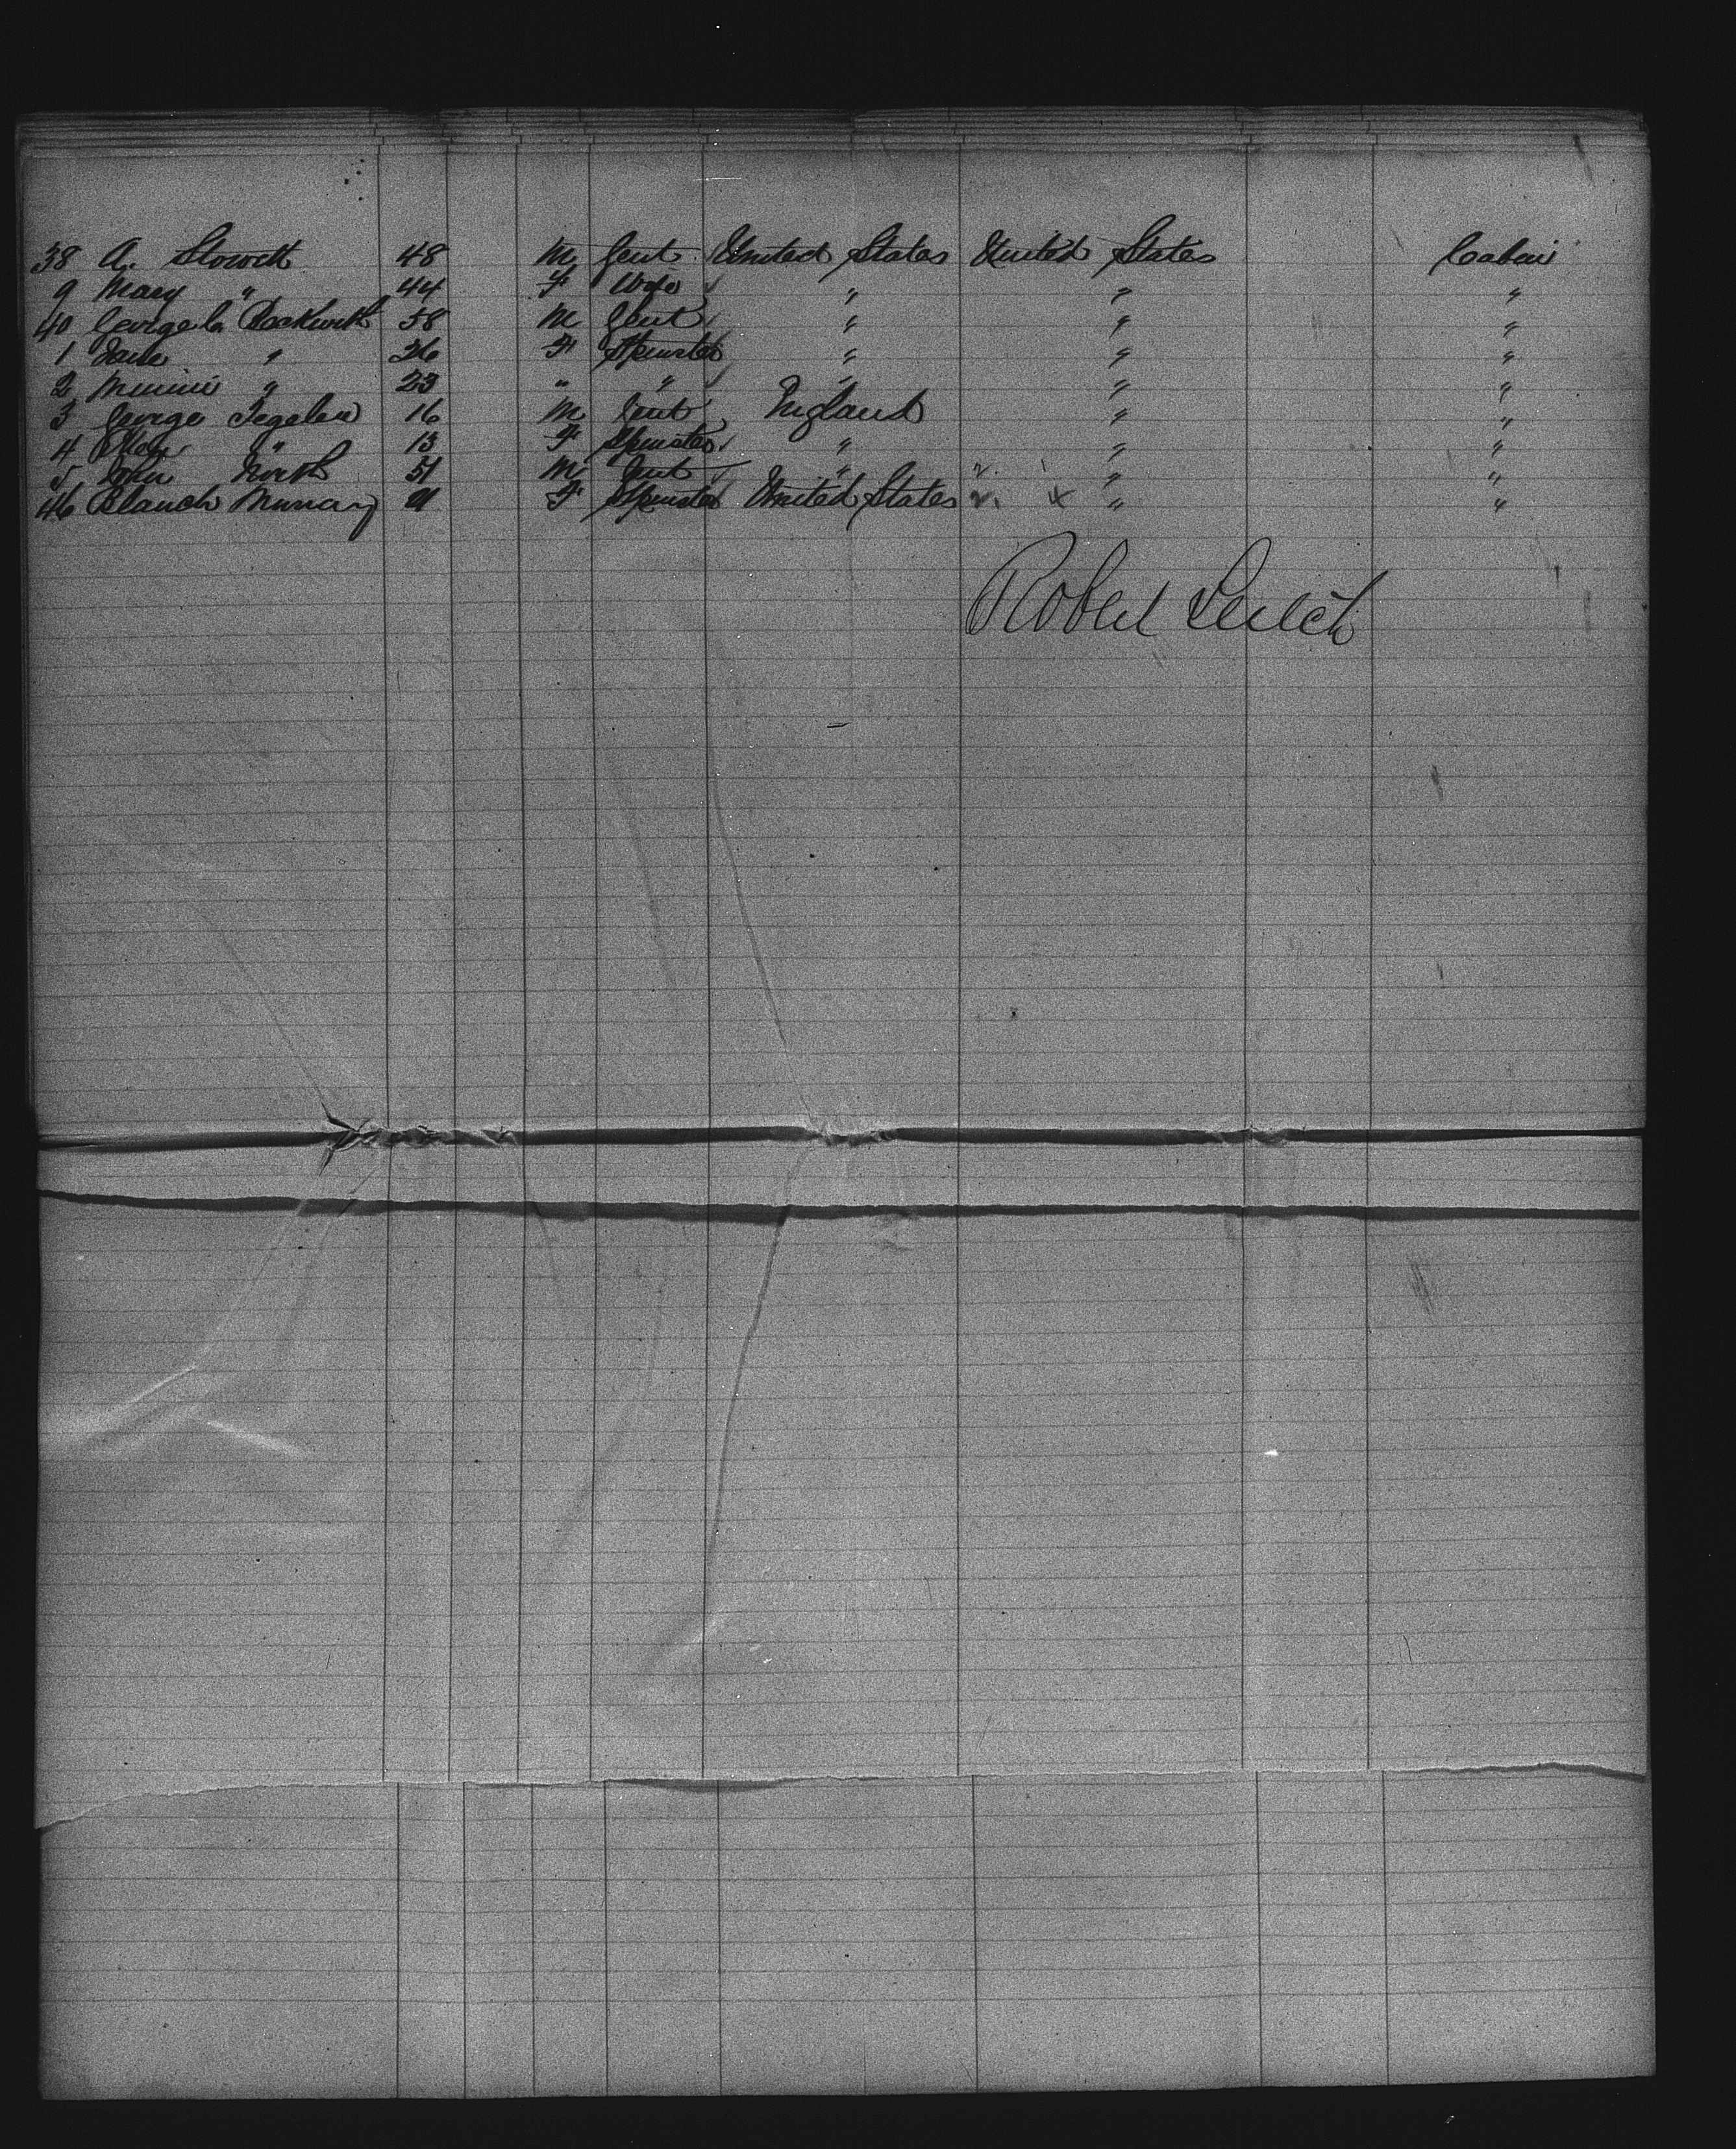 38 A. Stowell 48 M Gent United States United States Cabin
9 Mary " 44 F Wife " " "
40 George 58 M Gent " " "
1 Jane " 26 F Spinster " " "
2 Minnie " 23 " " " " "
3 George 16 M Gent England " "
4 " 13 F Spinster " " "
5 John North 51 M Gent " " "
46 Blanch Murray F Spinster United States " "
Robert Leitch